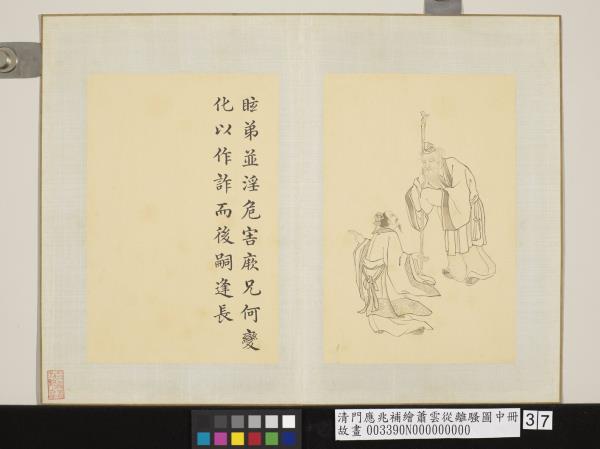 眩弟並淫危害厥兄何變
化以作詐而後嗣逢長
清門應兆補繪蕭雲從離騷圖中冊
故畫 003390N000000000
37